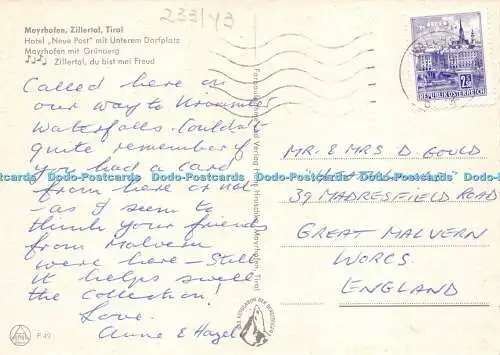 233/43
Mayrhofen, Zillertal, Tirol
Hotel „Neue Post" mit Unterem Dorfplatz
Mayrhofen mit Grünberg
Zillertal, du bist mei Freud
Called here on
our way to Krimmler
Waterfalls. Couldn't
quite remember if
you had a card
from here or not
- as I seem to
think your friends
from Malvern
were here - Still
it helps swell
the Collection!
Love.
Anne & Hazel
P 49
Mayrhofen, Tirol
REPUBLIK ÖSTERREICH
MR. & MRS D. GOULD
39 MADRESFIELD ROAD
GREAT MALVERN
WORCS.
ENGLAND
Dodo-Postcards Dodo-Postcards Dodo-Postcards Dodo-Postcards